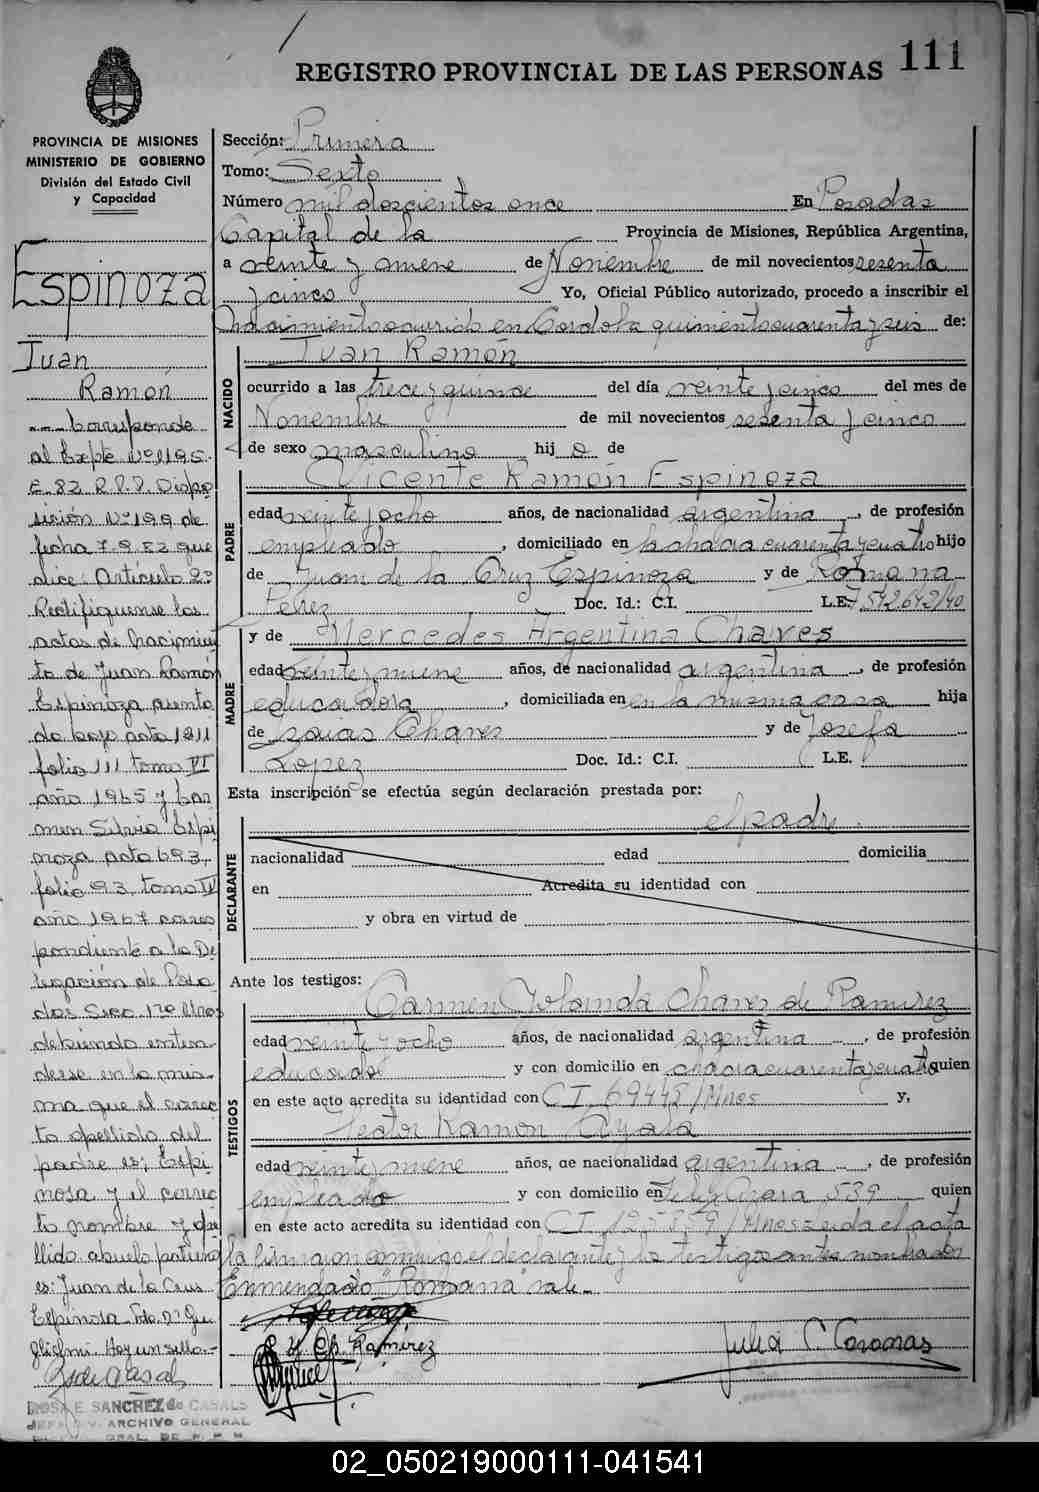 111
REGISTRO PROVINCIAL DE LAS PERSONAS
PROVINCIA DE MISIONES
MINISTERIO DE GOBIERNO
División del Estado Civil
y Capacidad
Espinoza
Juan
Ramón
Corresponde
al Expte Nº 1195-
E-82 R.P.P. Dispo
sición Nº 199 de
fecha 7-9-82 que
dice: Artículo 2º
Rectifíquense las
actas de nacimien
to de Juan Ramón
Espinoza asenta
da bajo acta 1211
folio 111 tomo VI
año 1965 y Car
men Silvia Espi
noza acta 693,
folio 93 tomo IV
año 1967 corres
pondiente a la De
legación de Posa
das Secc. 1ra
debiendo enten
derse en la mis
ma que el correc
to apellido del
padre es; Espi
nosa y el correc
to nombre y ape
llido abuelo paterno
es: Juan de la Cruz
Espinosa. Fdo. Dr. Gu
glielmi. Hay un sello.-
ROSA E. SANCHEZ de CASALS
JEFA DIV. ARCHIVO GENERAL
Sección: Primera
Tomo: Sexto
Número mil doscientos once En Posadas
Capital de la Provincia de Misiones, República Argentina,
a veinte y nueve de Noviembre de mil novecientos sesenta
y cinco Yo, Oficial Público autorizado, procedo a inscribir el
nacimiento ocurrido en Cordoba quinientos cuarenta y seis de:
Juan Ramón
NACIDO
ocurrido a las trece y quince del día veinte y cinco del mes de
Noviembre de mil novecientos sesenta y cinco
de sexo masculino hij o de
Vicente Ramón Espinoza
PADRE
edad veinte y ocho años, de nacionalidad argentina, de profesión
empleado, domiciliado en la chacra cuarenta y cuatro hijo
de Juan de la Cruz Espinoza y de Romana
Perez Doc. Id.: C.I. L.E. 7.542.642/40
y de Mercedes Argentina Chaves
MADRE
edad veinte y nueve años, de nacionalidad argentina, de profesión
educadora, domiciliada en en la misma casa hija
de Isaias Chaves y de Josefa
Lopez Doc. Id.: C.I. L.E.
Esta inscripción se efectúa según declaración prestada por:
el padre.
DECLARANTE
nacionalidad edad domicilia
en Acredita su identidad con
y obra en virtud de
Ante los testigos:
Carmen Yolanda Chaves de Ramirez
TESTIGOS
edad veinte y ocho años, de nacionalidad argentina, de profesión
educador y con domicilio en chacra cuarenta y cuatro quien
en este acto acredita su identidad con C I. 69445/Mnes y,
Hector Ramon Ayala
edad veinte y nueve años, de nacionalidad argentina, de profesión
empleado y con domicilio en Felix Azara 539 quien
en este acto acredita su identidad con C I. 125859/Mnes Leida el acta
la firmaron conmigo el declarante y los testigos antes nombrados
Enmendado "Romana" vale.-
C Y Ch Ramírez
Julia C. Coronas
02_050219000111-041541